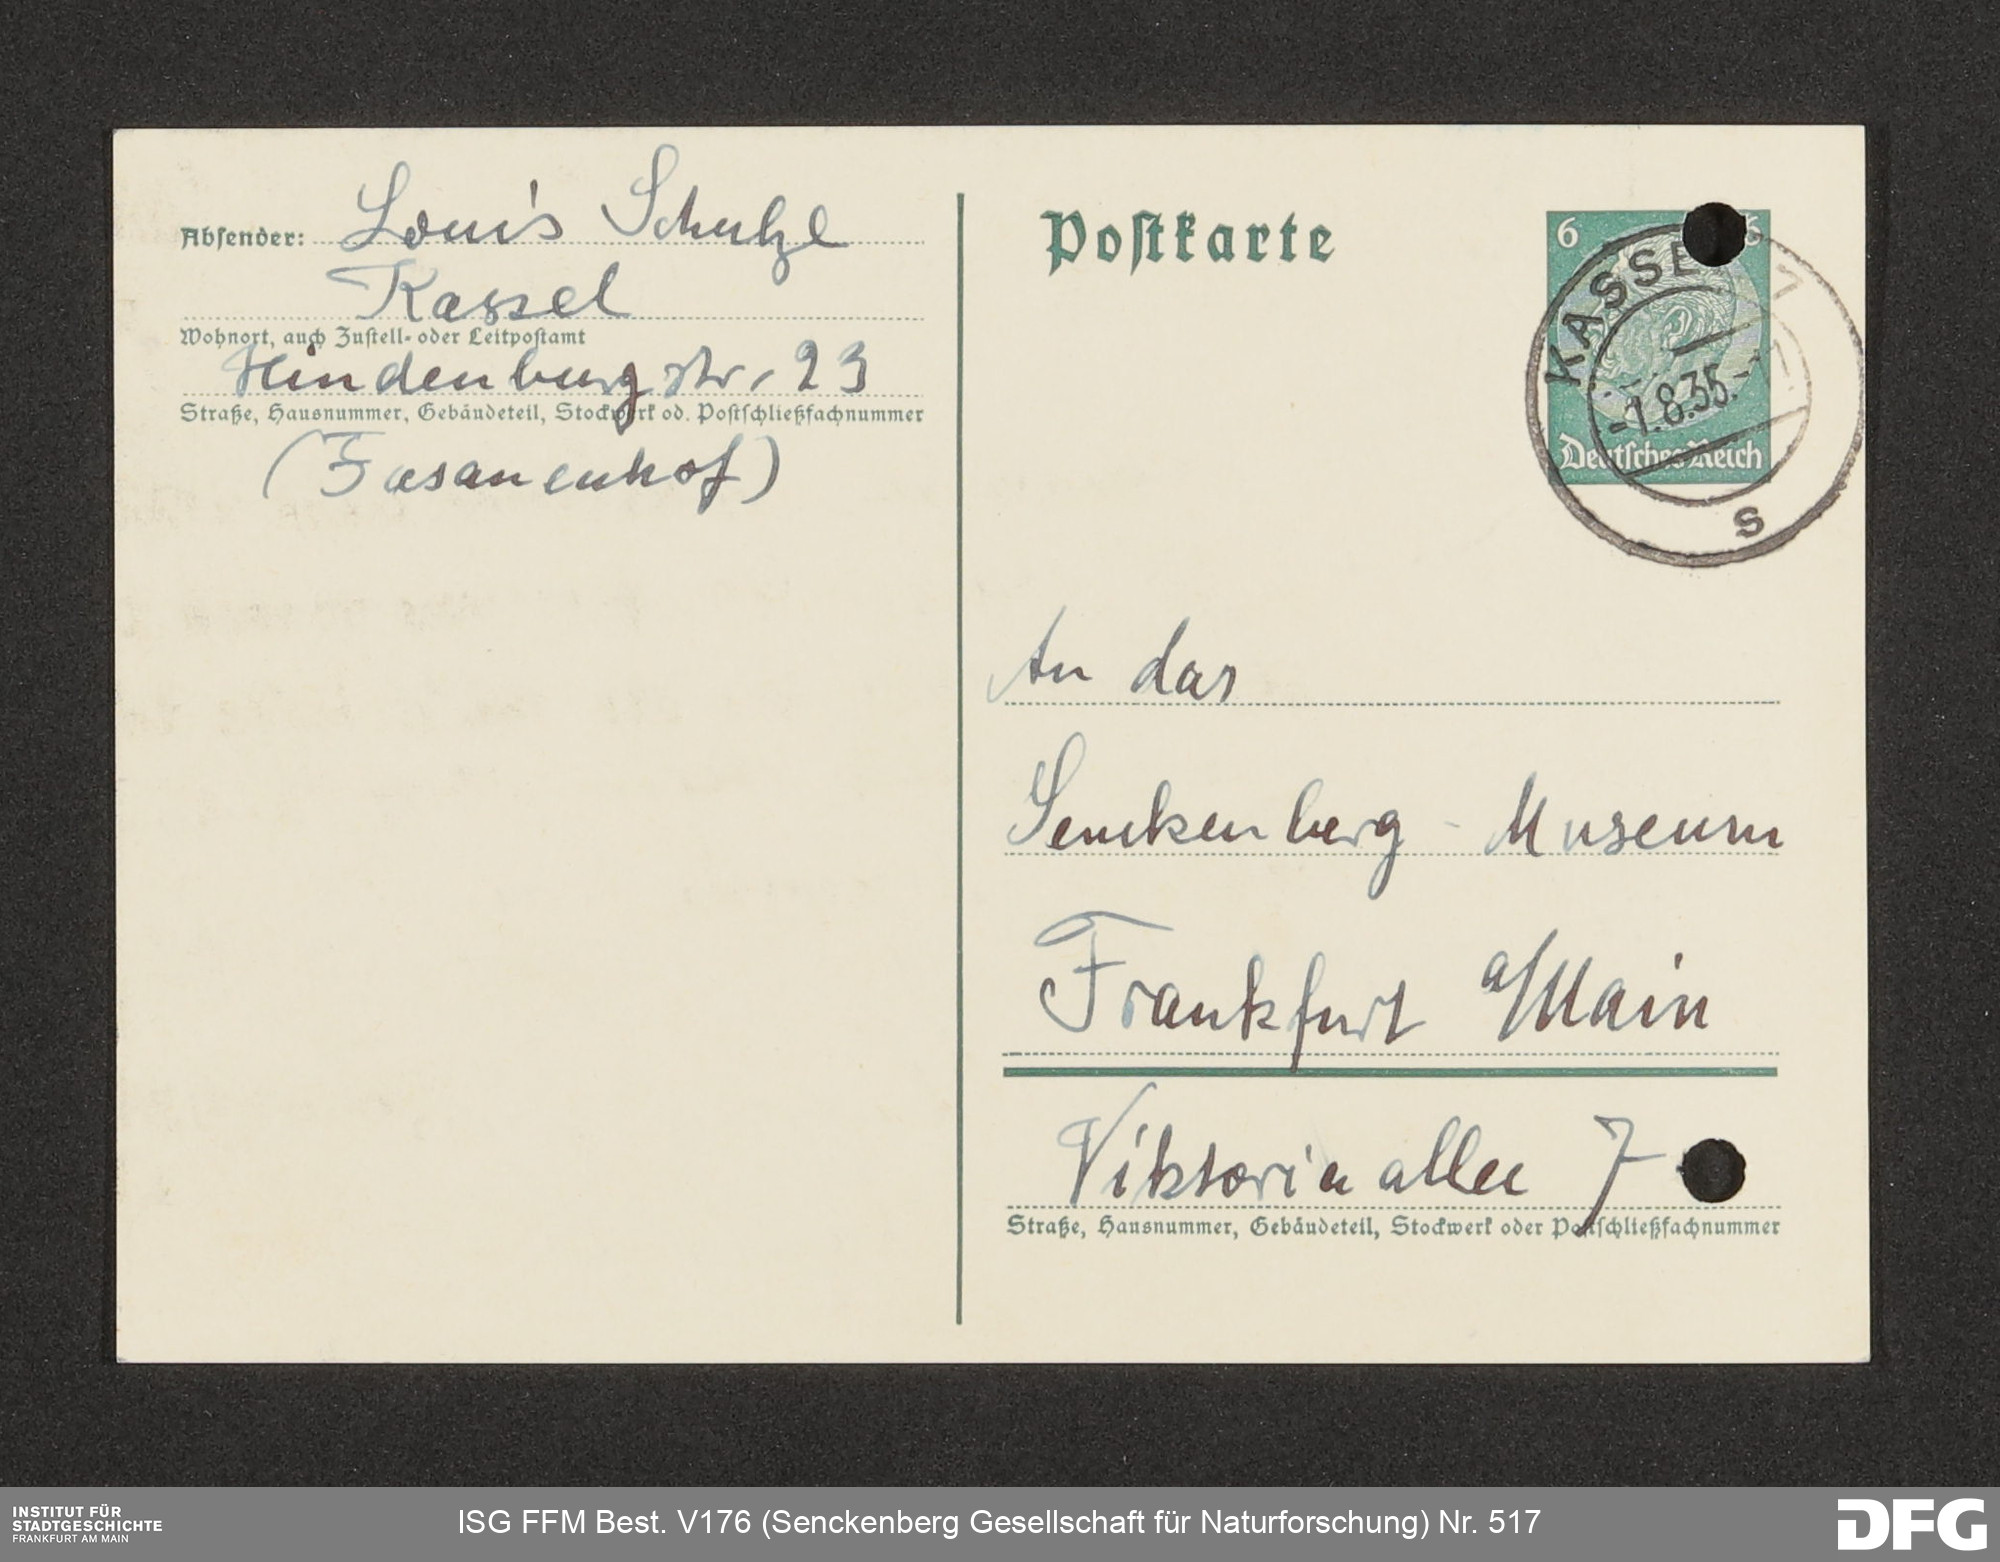 Absender: Louis Schulze
Kassel
Wohnort, auch Zustell- oder Leitpostamt
Hindenburgstr. 23
Straße, Hausnummer, Gebäudeteil, Stockwerk od. Postschließfachnummer
(Fasanenhof)
Postkarte
6 6
KASSEL 7
-1.8.35.-
Deutsches Reich
s
An das
Senckenberg-Museum
Frankfurt a/Main
Viktoriaallee 7
Straße, Hausnummer, Gebäudeteil, Stockwerk oder Postschließfachnummer
INSTITUT FÜR
STADTGESCHICHTE
FRANKFURT AM MAIN
ISG FFM Best. V176 (Senckenberg Gesellschaft für Naturforschung) Nr. 517
DFG